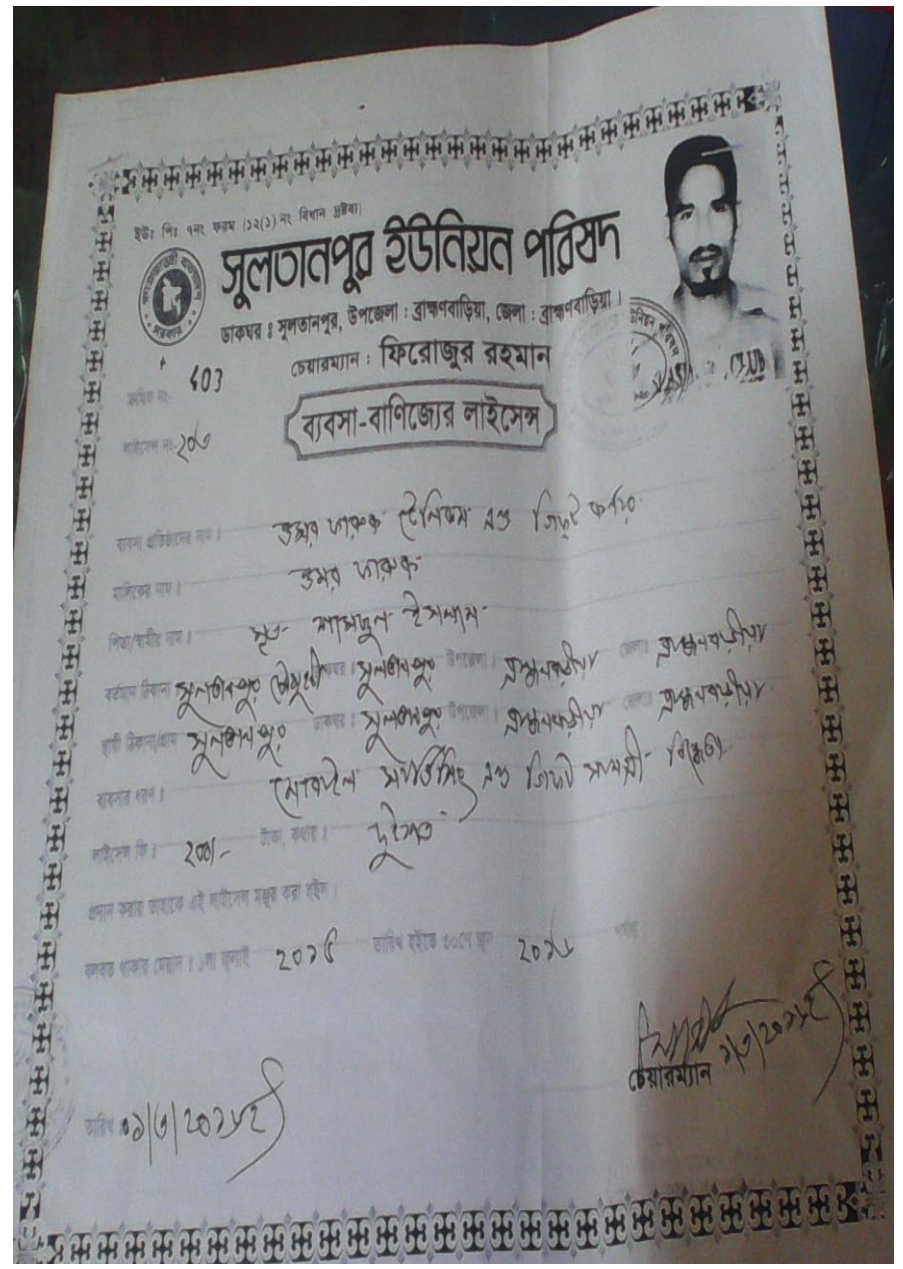 ইউঃ পিঃ ৭নং ফরম ।১২(১) নং বিধান দ্রষ্টব্য।
সুলতানপুর ইউনিয়ন পরিষদ
ডাকঘর ঃ সুলতানপুর, উপজেলা : ব্রাহ্মণবাড়িয়া, জেলা : ব্রাহ্মণবাড়িয়া।
চেয়ারম্যান : ফিরোজুর রহমান
ক্রমিক নং- ৬03
ব্যবসা-বাণিজ্যের লাইসেন্স
লাইসেন্স নং- ২০৬
ব্যবসা প্রতিষ্ঠানের নাম । ওমর ফারুক টেলিকম এন্ড গিফট কর্নার
মালিকের নাম । ওমর ফারুক
পিতা/স্বামীর নাম । মৃত শামছুল ইসলাম
বর্তমান ঠিকানা সুলতানপুর চৌমুহনী ডাকঘর । সুলতানপুর উপজেলা । ব্রাহ্মনবাড়ীয়া জেলাঃ ব্রাহ্মনবাড়ীয়া
স্থায়ী ঠিকানা/গ্রাম সুলতানপুর ডাকঘর । সুলতানপুর উপজেলা । ব্রাহ্মনবাড়ীয়া জেলাঃ ব্রাহ্মনবাড়ীয়া
ব্যবসার ধরণ । মোবাইল সার্ভিসিং এন্ড গিফট সামগ্রী বিক্রেতা
লাইসেন্স ফি । 200/- টাকা, কথায় । দুইশত
প্রদান করায় তাহাকে এই লাইসেন্স মঞ্জুর করা হইল।
বলবত থাকার মেয়াদ ঃ ১লা জুলাই ২০১৫ তারিখ হইতে ৩০শে জুন ২০১৬ পর্যন্ত
চেয়ারম্যান
তারিখ